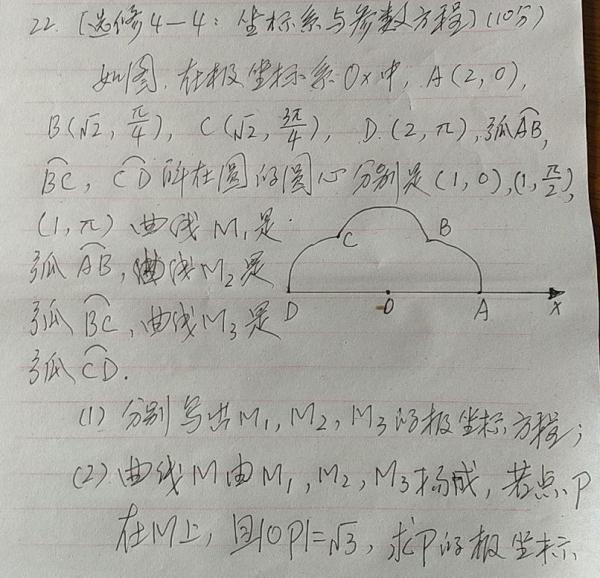 22. [选修4—4：坐标系与参数方程] (10分)
如图，在极坐标系Ox中，A(2,0)，
B(√2, π/4)，C(√2, 3π/4)，D(2,π)，弧AB⌒，
BC⌒，CD⌒所在圆的圆心分别是(1,0)，(1,π/2)，
(1,π) 曲线M₁是
弧AB⌒，曲线M₂是
弧BC⌒，曲线M₃是
弧CD⌒.
C B
D O A x
(1) 分别写出M₁，M₂，M₃的极坐标方程；
(2) 曲线M由M₁，M₂，M₃构成，若点P
在M上，且|OP|=√3，求P的极坐标